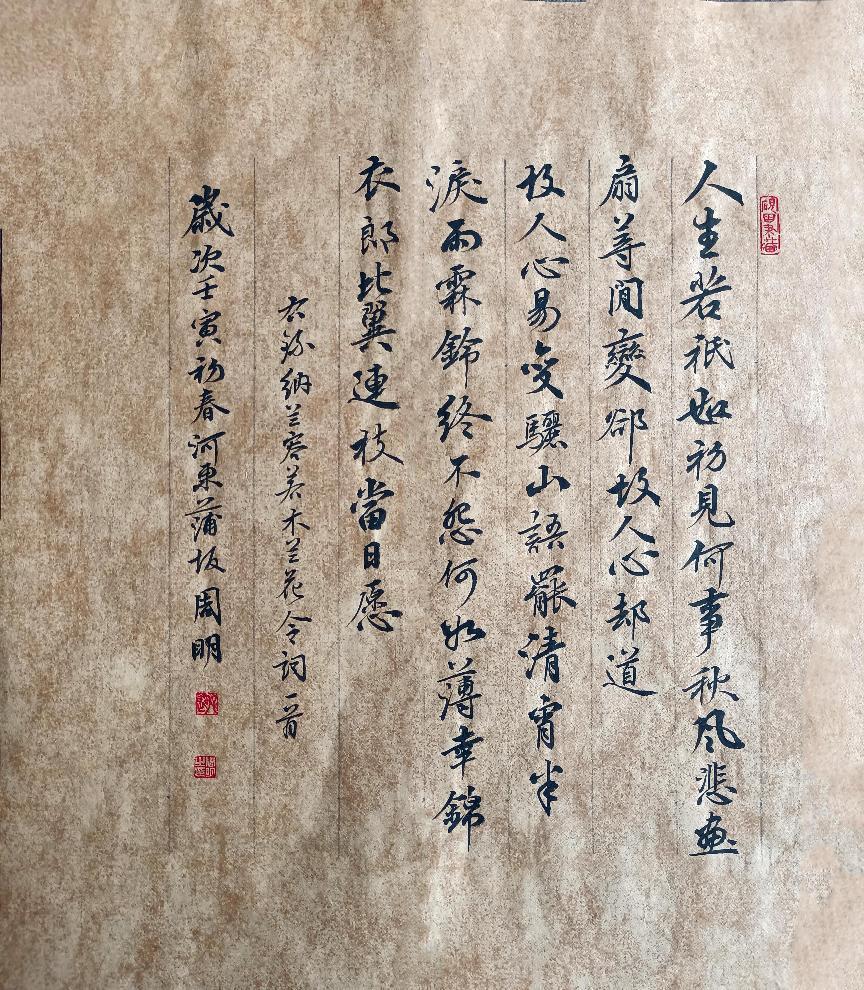 人生若祇如初見何事秋風悲畫
扇等閒變卻故人心却道
故人心易變驪山語罷清宵半
淚雨霖鈴終不怨何如薄幸錦
衣郎比翼連枝當日愿
右錄納兰容若木兰花令詞一首
歲次壬寅初春河東蒲坂周明